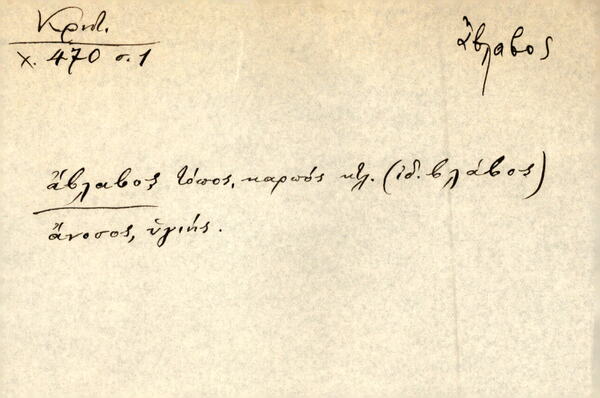 Κρητ.
χ. 470 σ. 1
ἄβλαβος
ἄβλαβος τόπος, καρπός κτλ. (ἰδ. βλάβος)
ἄνοσος, ὑγιής.